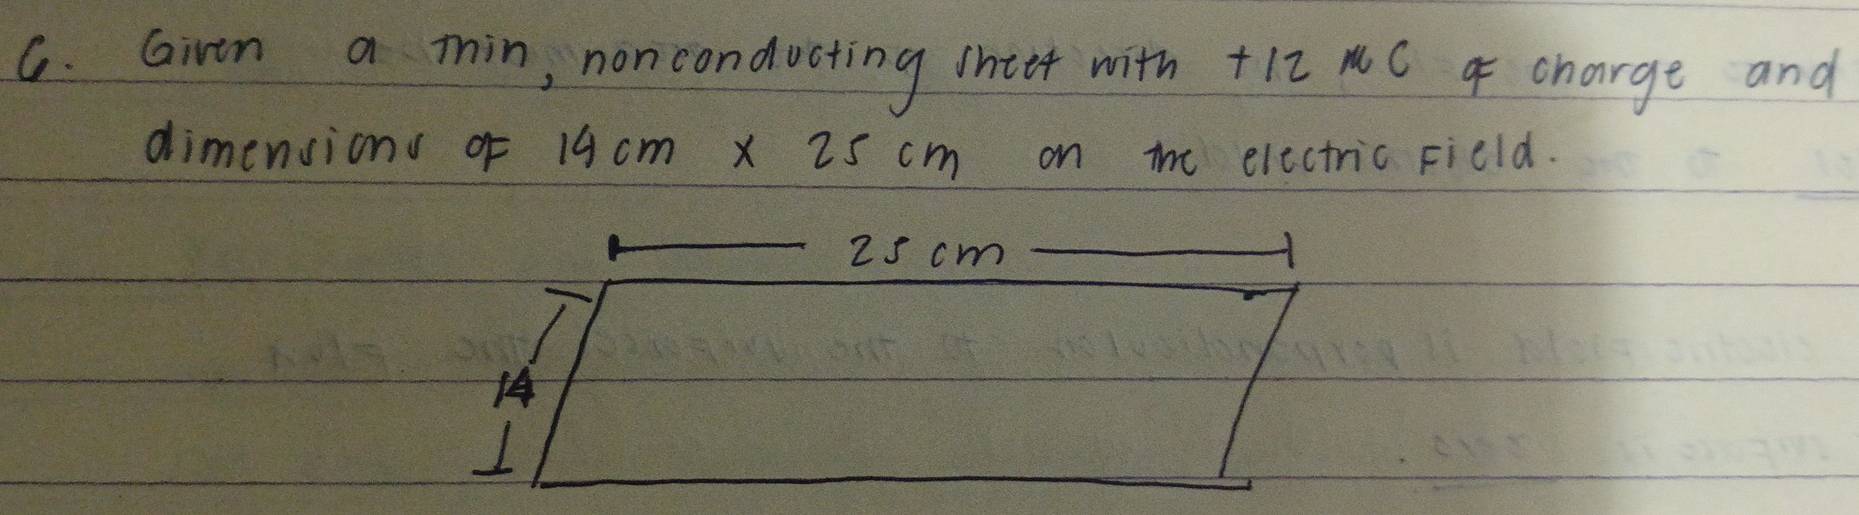 6. Given a thin, nonconducting sheet with +12 μC of charge and
dimensions of 14 cm x 25 cm on the electric Field.
25 cm
14